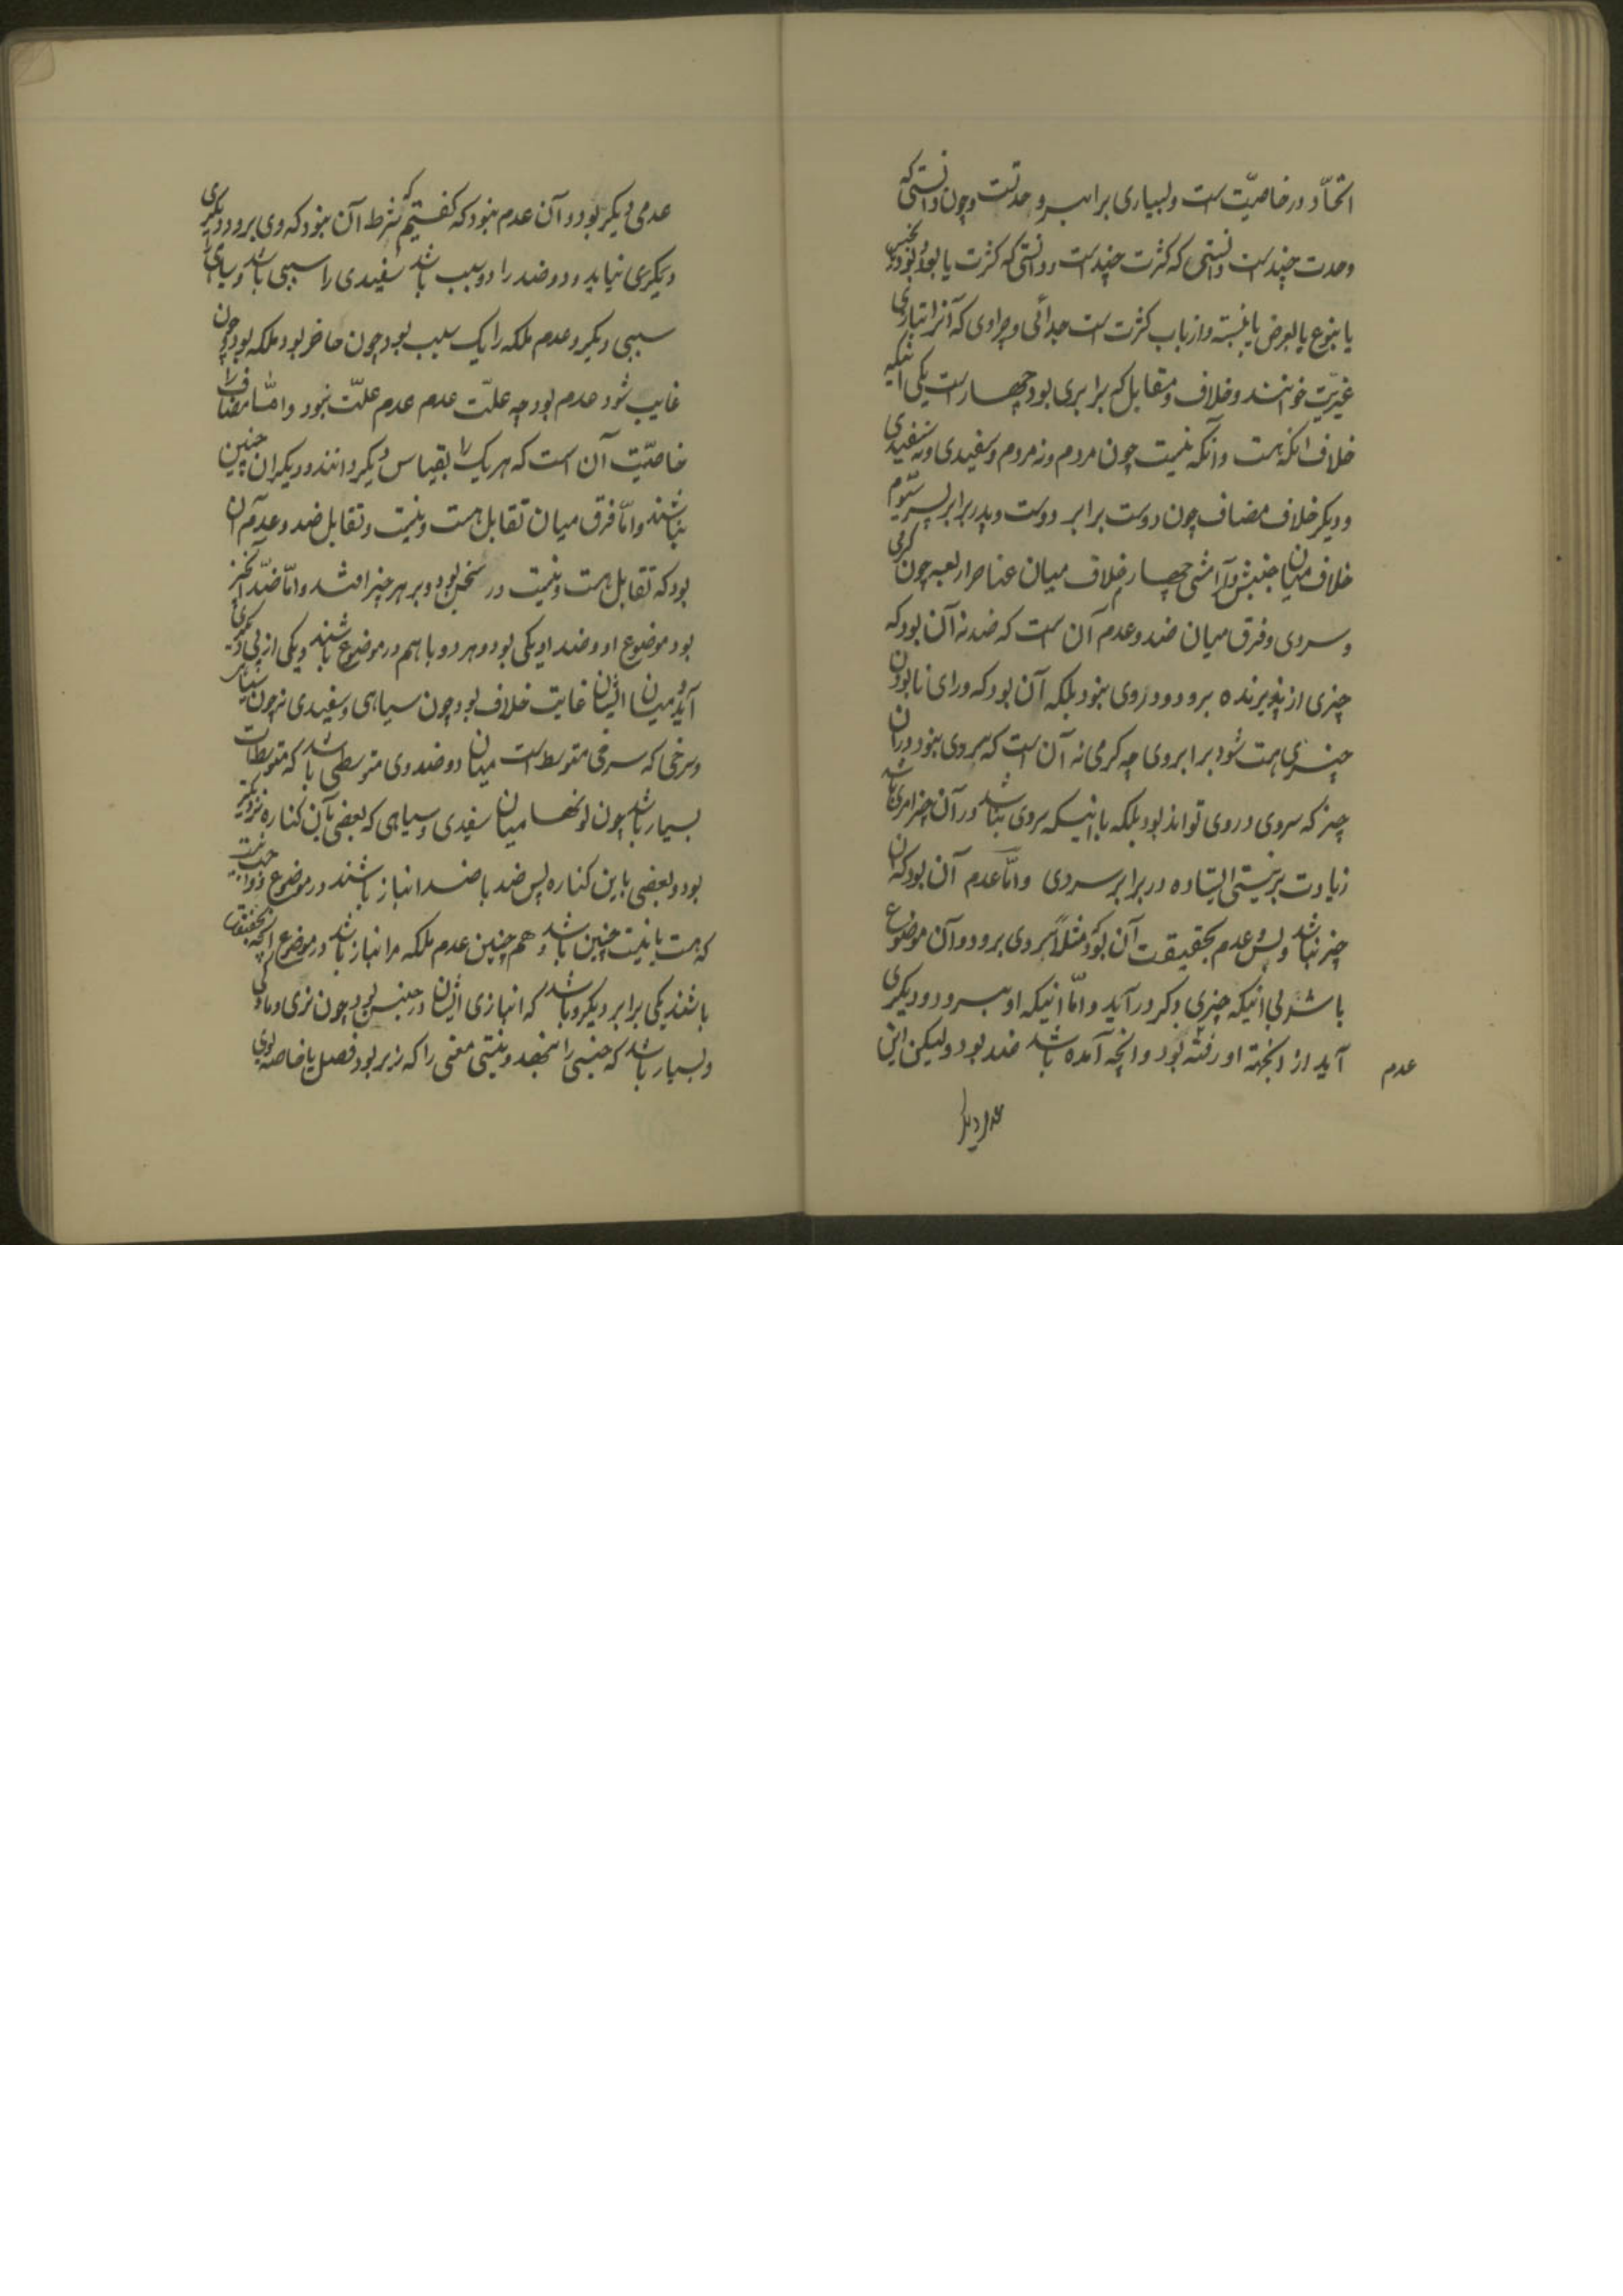 اتحّاد در خاصیّت است و بسیاری برابر وحدتست و چون دانستی که
وحدت چند است دانستی که کثرت چند است و دانستی که کثرت یا بعدد بود یا بجنس
یا بنوع یا بعرض یا بنسبة و از باب کثرت است جدائی و جزاوی که آنرا بتازی
غیریّت خوانند و خلاف و مقابل که برابری بود چهار است یکی انیکه
خلاف انکه هست و آنکه نیست چون مردم و نه مردم و سفیدی و نه سفیدی
و دیکر خلاف مضاف چون دوست برابر دوست و پدر برابر پسر سیّوم
خلاف میان جنبش و آرامش چهارم خلاف میان عناصر اربعه چون کرمی
و سردی و فرق میان ضد و عدم آن است که ضد نه آن بود که
چیزی از پذیرنده برود و در وی نبود بلکه آن بود که ورای نابودن
چیزی هست شود برابر وی چه کرمی نه آن است که سردی نبود در آن
چیز که سردی در وی تواند بود بلکه با انیکه سردی نباشد در آن چیز امری باشد
زیادت بر نیستی ایستاده در برابر سردی و امّا عدم آن بود که آن
چیز نباشد و بس و عدم بحقیقت آن بود که مثلاً سردی برود و آن موضوع
باشد بی انیکه چیزی دکر در آید و امّا انیکه او برود و دیکری
آید از انجهته او رفته بود و انچه آمده باشد ضد بود ولیکن این
عدم
عدم دیکر
عدمی دیکر بود و آن عدم نبود که کفتیم که شرط آن نبود که وی برود و دیکری
دیکری نیاید و دو ضد را دو سبب باشد سفیدی را سببی باشد و سیاهی را
سببی دیکر و عدم ملکه را یک سبب بود چون حاضر بود ملکه بود چون
غایب شود عدم بود چه علّت عدم عدم علّت بود و امّا مضاف را
خاصیّت آن است که هر یک را بقیاس دیکر دانند و دیکران چنین
نباشند و امّا فرق میان تقابل هست و نیست و تقابل ضد و عدم آن
بود که تقابل هست و نیست در سخن بود و بر هر چیز افتد و امّا ضدّ آنچیز
بود موضوع او و ضد او یکی بود و هر دو با هم در موضوع نباشند و یکی از پی دیکری
آید و میان ایشان غایت خلاف بود چون سیاهی و سفیدی نه چون سیاهی
و سرخی که سرخی متوسط است میان دو ضد وی متوسطی باشد که متوسطات
بسیار باشد چون لونها میان سفیدی و سیاهی که بعضی بآن کناره نزدیکتر
بود و بعضی باین کناره پس ضد با ضد انباز باشند در موضوع و واجب نیست
که هست با نیست چنین باشد و هم چنین عدم ملکه را انباز باشد در موضوع انچه بحقیقت
باشند یکی برابر دیکر و باشد که انبازی ایشان در جنس بود چون نری و مادکی
و بسیار باشد که جنسی را بنهند و نیستی معنی را که زیر بود فصل یا خاصه بودی